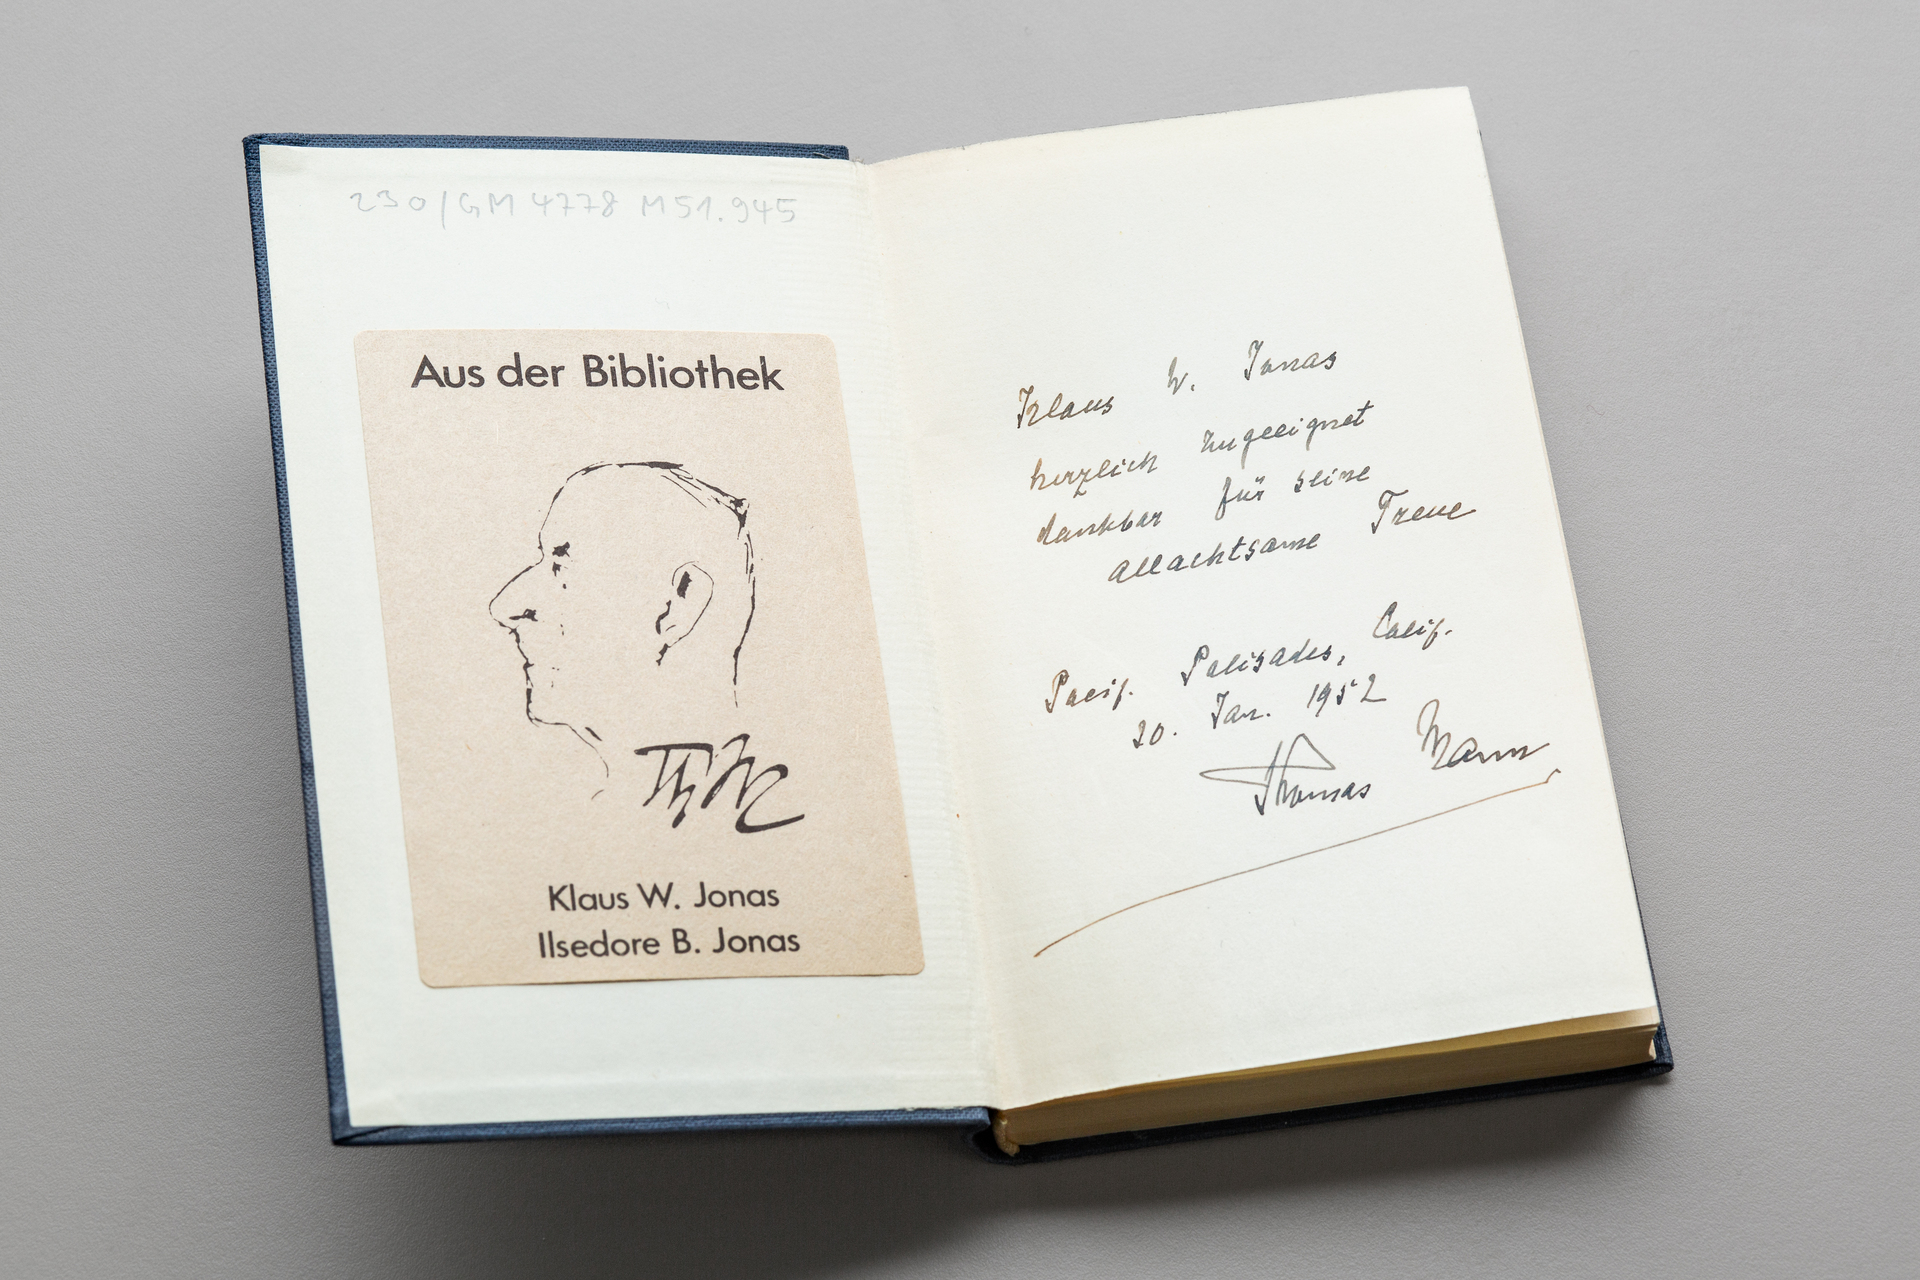 230/GM 4778 M51.945
Aus der Bibliothek
Th M
Klaus W. Jonas
Ilsedore B. Jonas
Klaus W. Jonas
herzlich zugeeignet
dankbar für seine
allachtsame Treue
Pacif. Palisades, Calif.
20. Jan. 1952
Thomas Mann